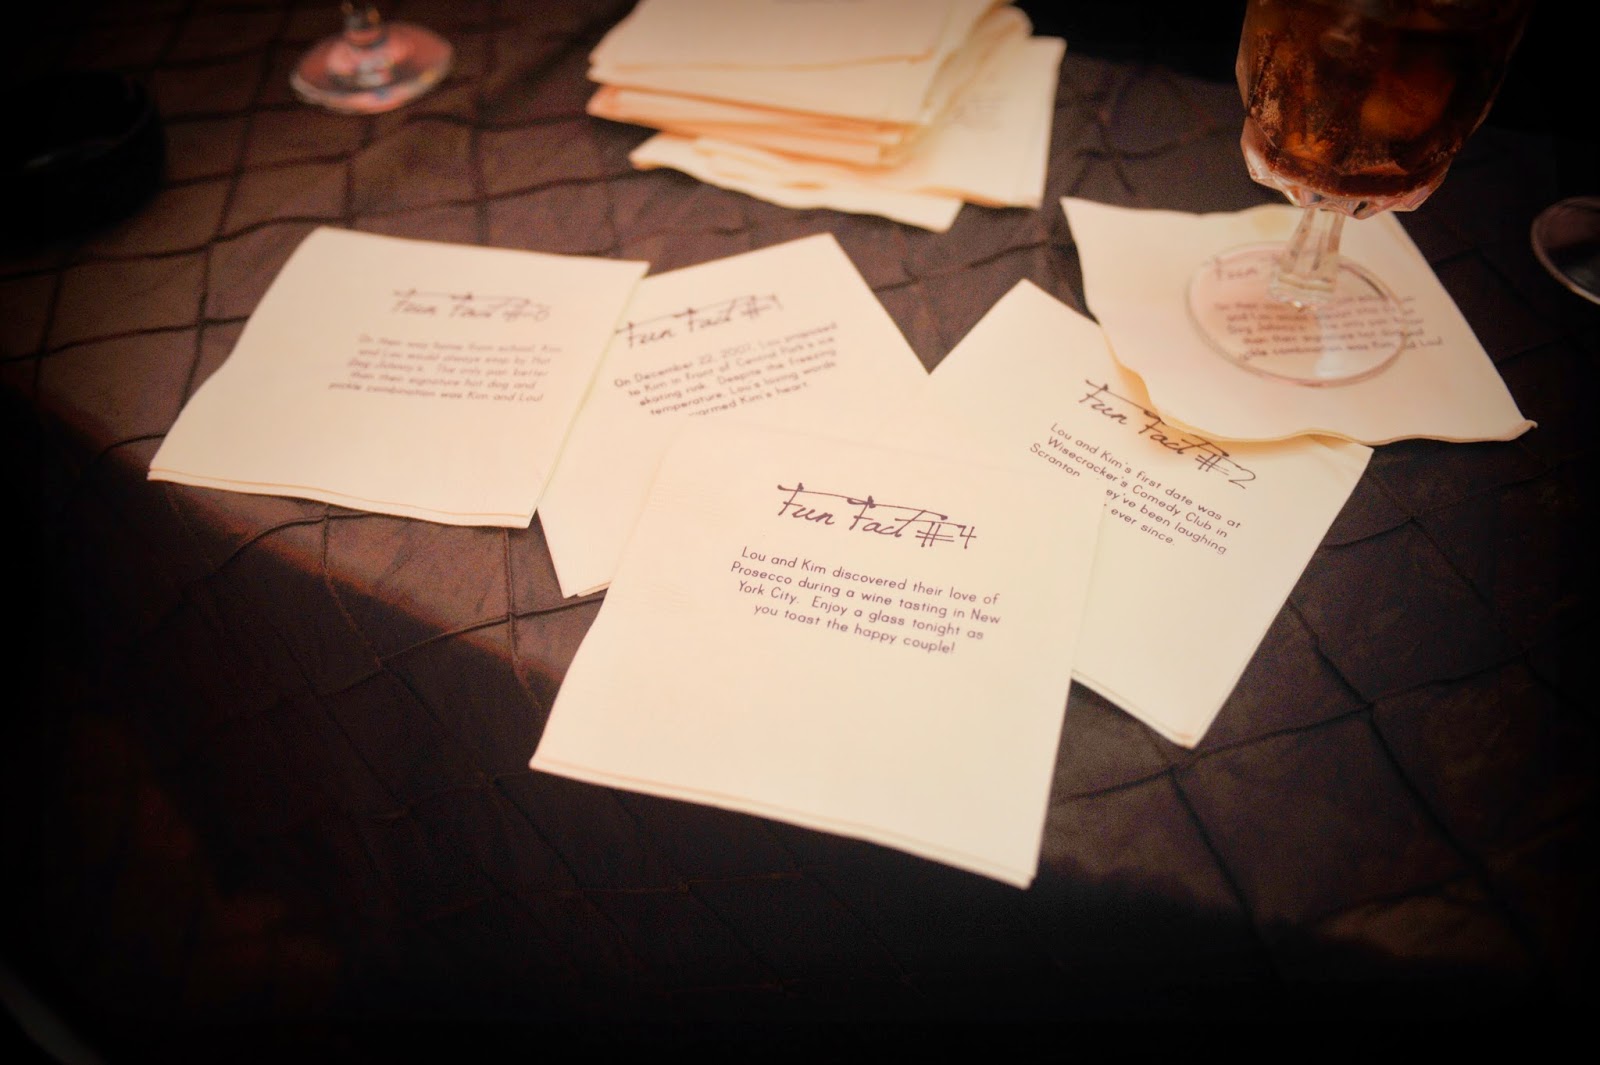 Fun Fact
On their way home from school, Kim
and Lou would always stop by Hot
Dog Johnny's. The only pair better
than their signature hot dog and
pickle combination was Kim and Lou!
Fun Fact #1
On December 22, 2007, Lou proposed
to Kim in front of Central Park's ice
skating rink. Despite the freezing
temperature, Lou's loving words
warmed Kim's heart.
Fun Fact #4
Lou and Kim discovered their love of
Prosecco during a wine tasting in New
York City. Enjoy a glass tonight as
you toast the happy couple!
Fun Fact #2
Lou and Kim's first date was at
Wisecracker's Comedy Club in
Scranton ey've been laughing
ever since.
Fun
On their
and Lou would always stop
Dog Johnny's. The only pair better
than their signature hot dog and
combination was Kim and Lou!